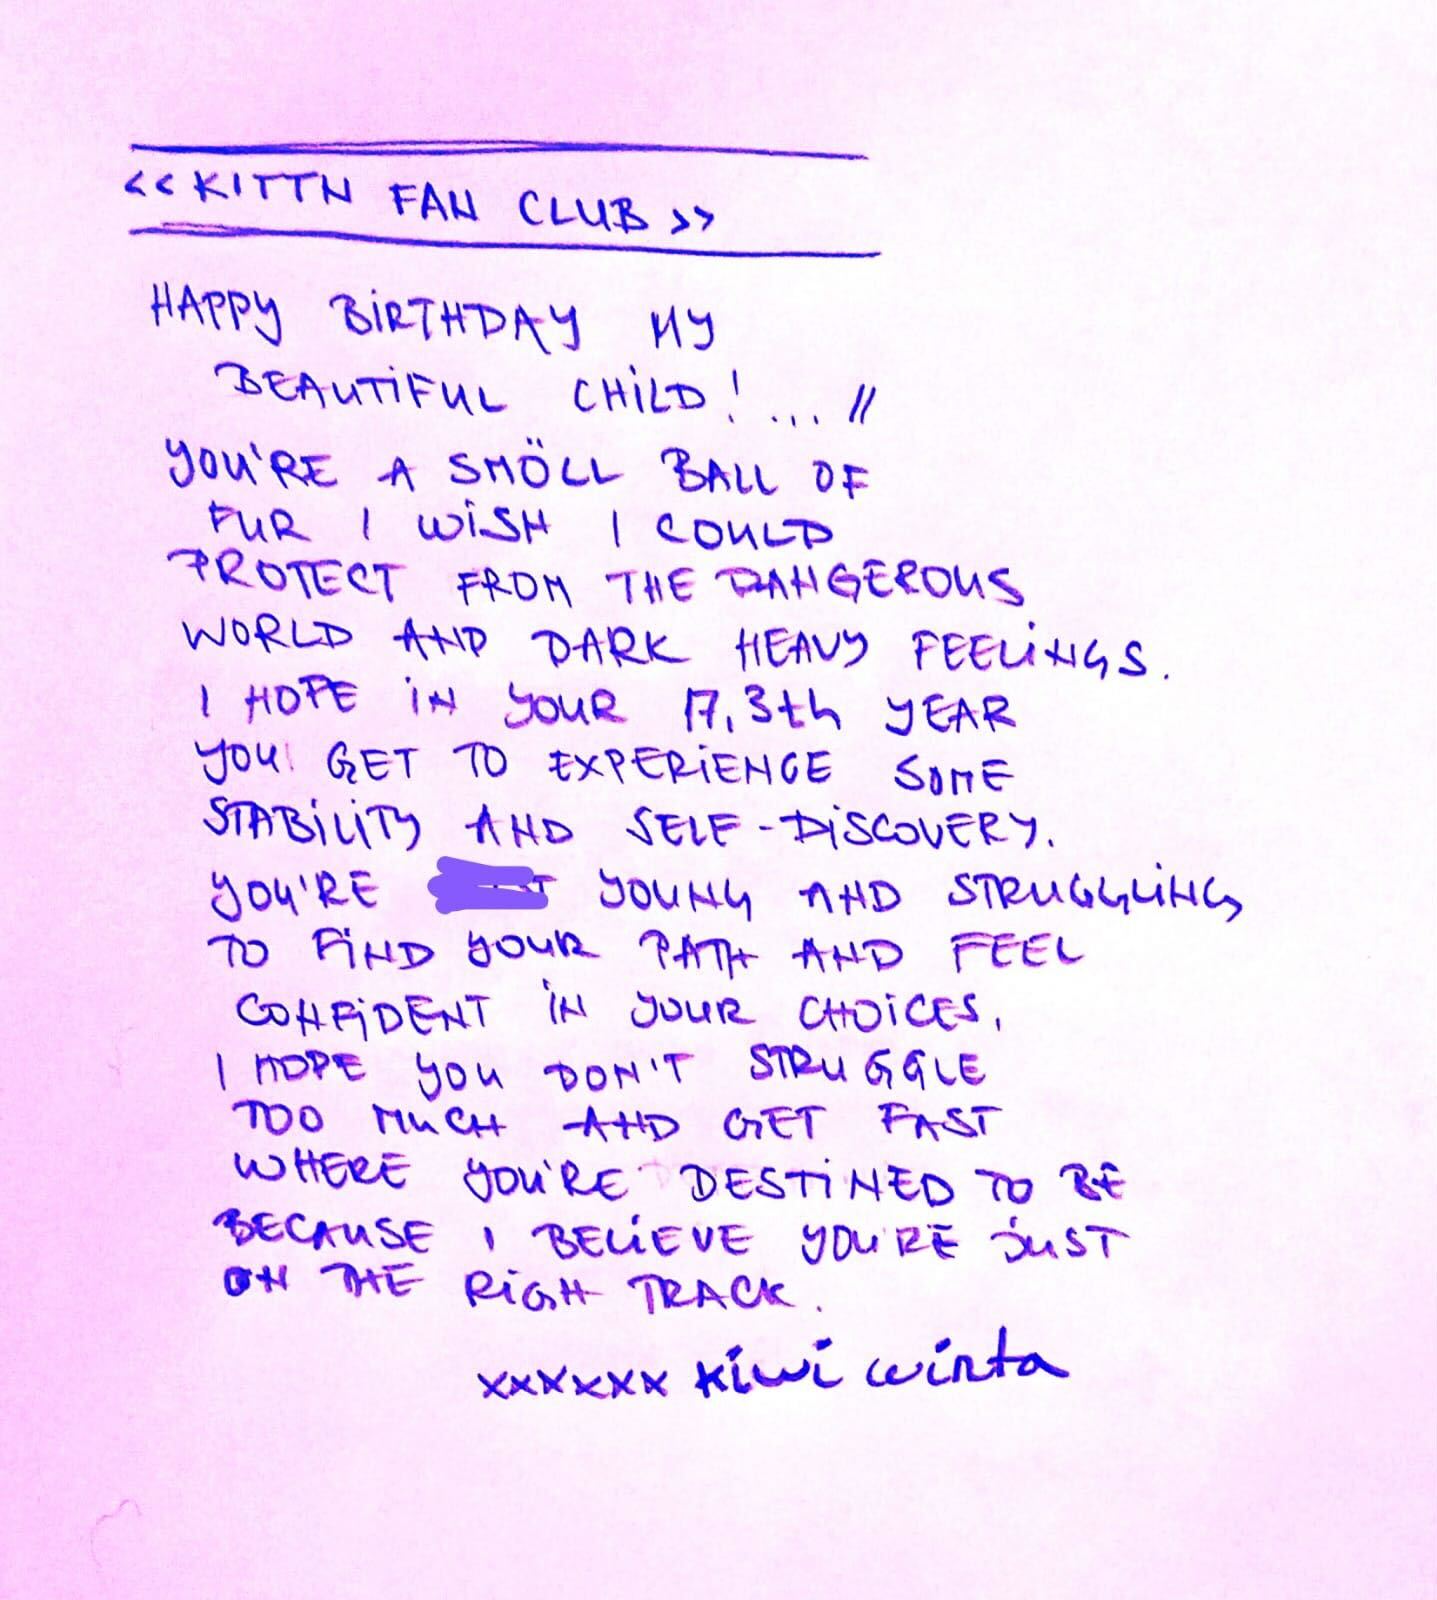 <<KITTN FAN CLUB>>
HAPPY BIRTHDAY MY
BEAUTIFUL CHILD!... //
YOU'RE A SMÖLL BALL OF
FUR I WISH I COULD
PROTECT FROM THE DANGEROUS
WORLD AND DARK HEAVY FEELINGS.
I HOPE IN YOUR 17,3th YEAR
YOU GET TO EXPERIENCE SOME
STABILITY AND SELF-DISCOVERY.
YOU'RE YOUNG AND STRUGGLING
TO FIND YOUR PATH AND FEEL
CONFIDENT IN YOUR CHOICES,
I HOPE YOU DON'T STRUGGLE
TOO MUCH AND GET FAST
WHERE YOU'RE DESTINED TO BE
BECAUSE I BELIEVE YOU'RE JUST
ON THE RIGH TRACK.
xxxxxx kiwi winta